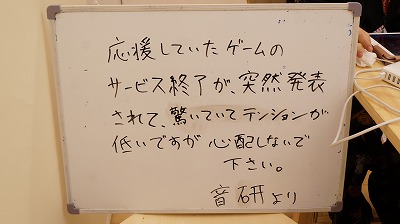 応援していたゲームの
サービス終了が、突然発表
されて、驚いていてテンションが
低いですが心配しないで
下さい。
音研より